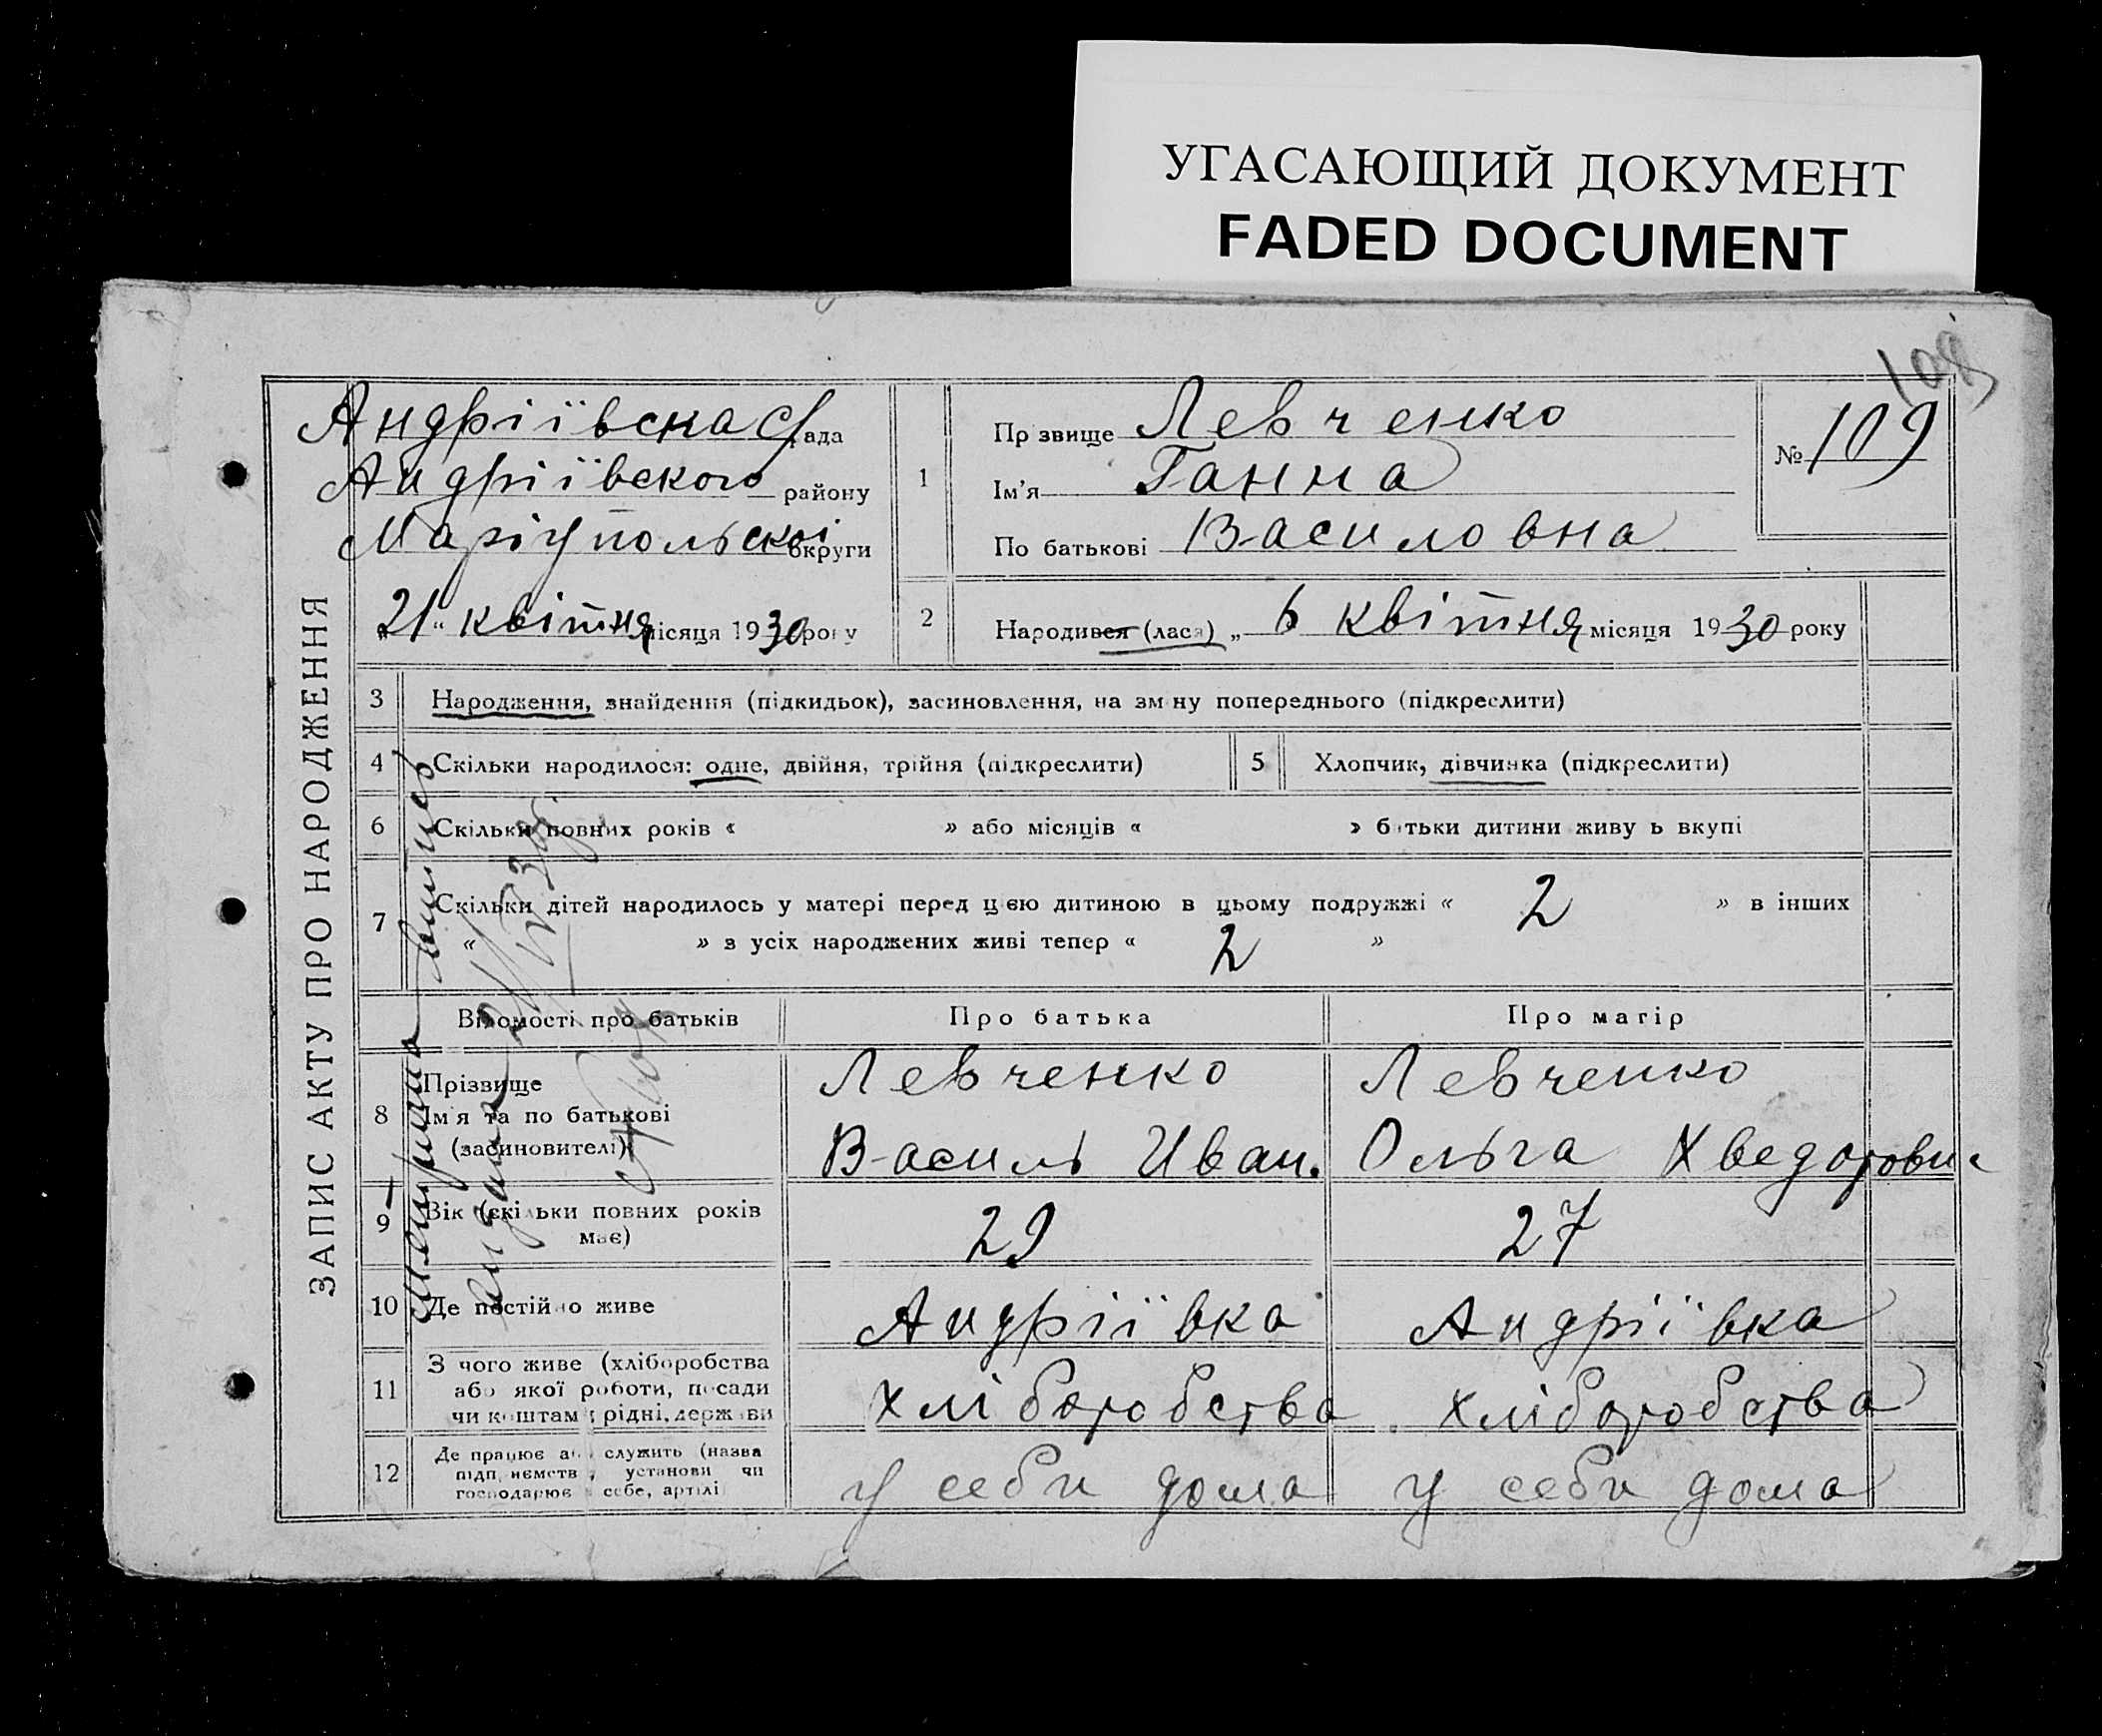 УГАСАЮЩИЙ ДОКУМЕНТ
FADED DOCUMENT
108
ЗАПИС АКТУ ПРО НАРОДЖЕННЯ
Андріївска С/рада
Андріївского району
Маріупольскоі округи
„21“ квітня місяця 1930 року
1
Прзвище Левченко
Ім'я Ганна
По батькові Василовна
№ 109
2
Народився (лася) „ 6 квітня місяця 1930 року
3 Народження, знайдення (підкидьок), засиновлення, на зміну попереднього (підкреслити)
4 Скільки народилося: одне, двійня, трійня (підкреслити)
5 Хлопчик, дівчинка (підкреслити)
6 Скільки повних років « » або місяців « » батьки дитини живуть вкупі
7 Скільки дітей народилось у матері перед цією дитиною в цьому подружжі « 2 » в інших
« » з усіх народжених живі тепер « 2 »
Відомості про батьків Про батька Про матір
8 Прізвище Левченко Левченко
Ім'я та по батькові
(засиновителі) Василь Иван. Ольга Хведоровн
9 Вік (скільки повних років має) 29 27
10 Де постійно живе Андріївка Андріївка
11 З чого живе (хліборобства
або якої роботи, посади
чи коштам рідні, держави Хліборобства Хліборобства
12 Де працює або служить (назва
підприємств, установи чи
господарює в себе, артілі у себи дома у себи дома
Метрика
видана